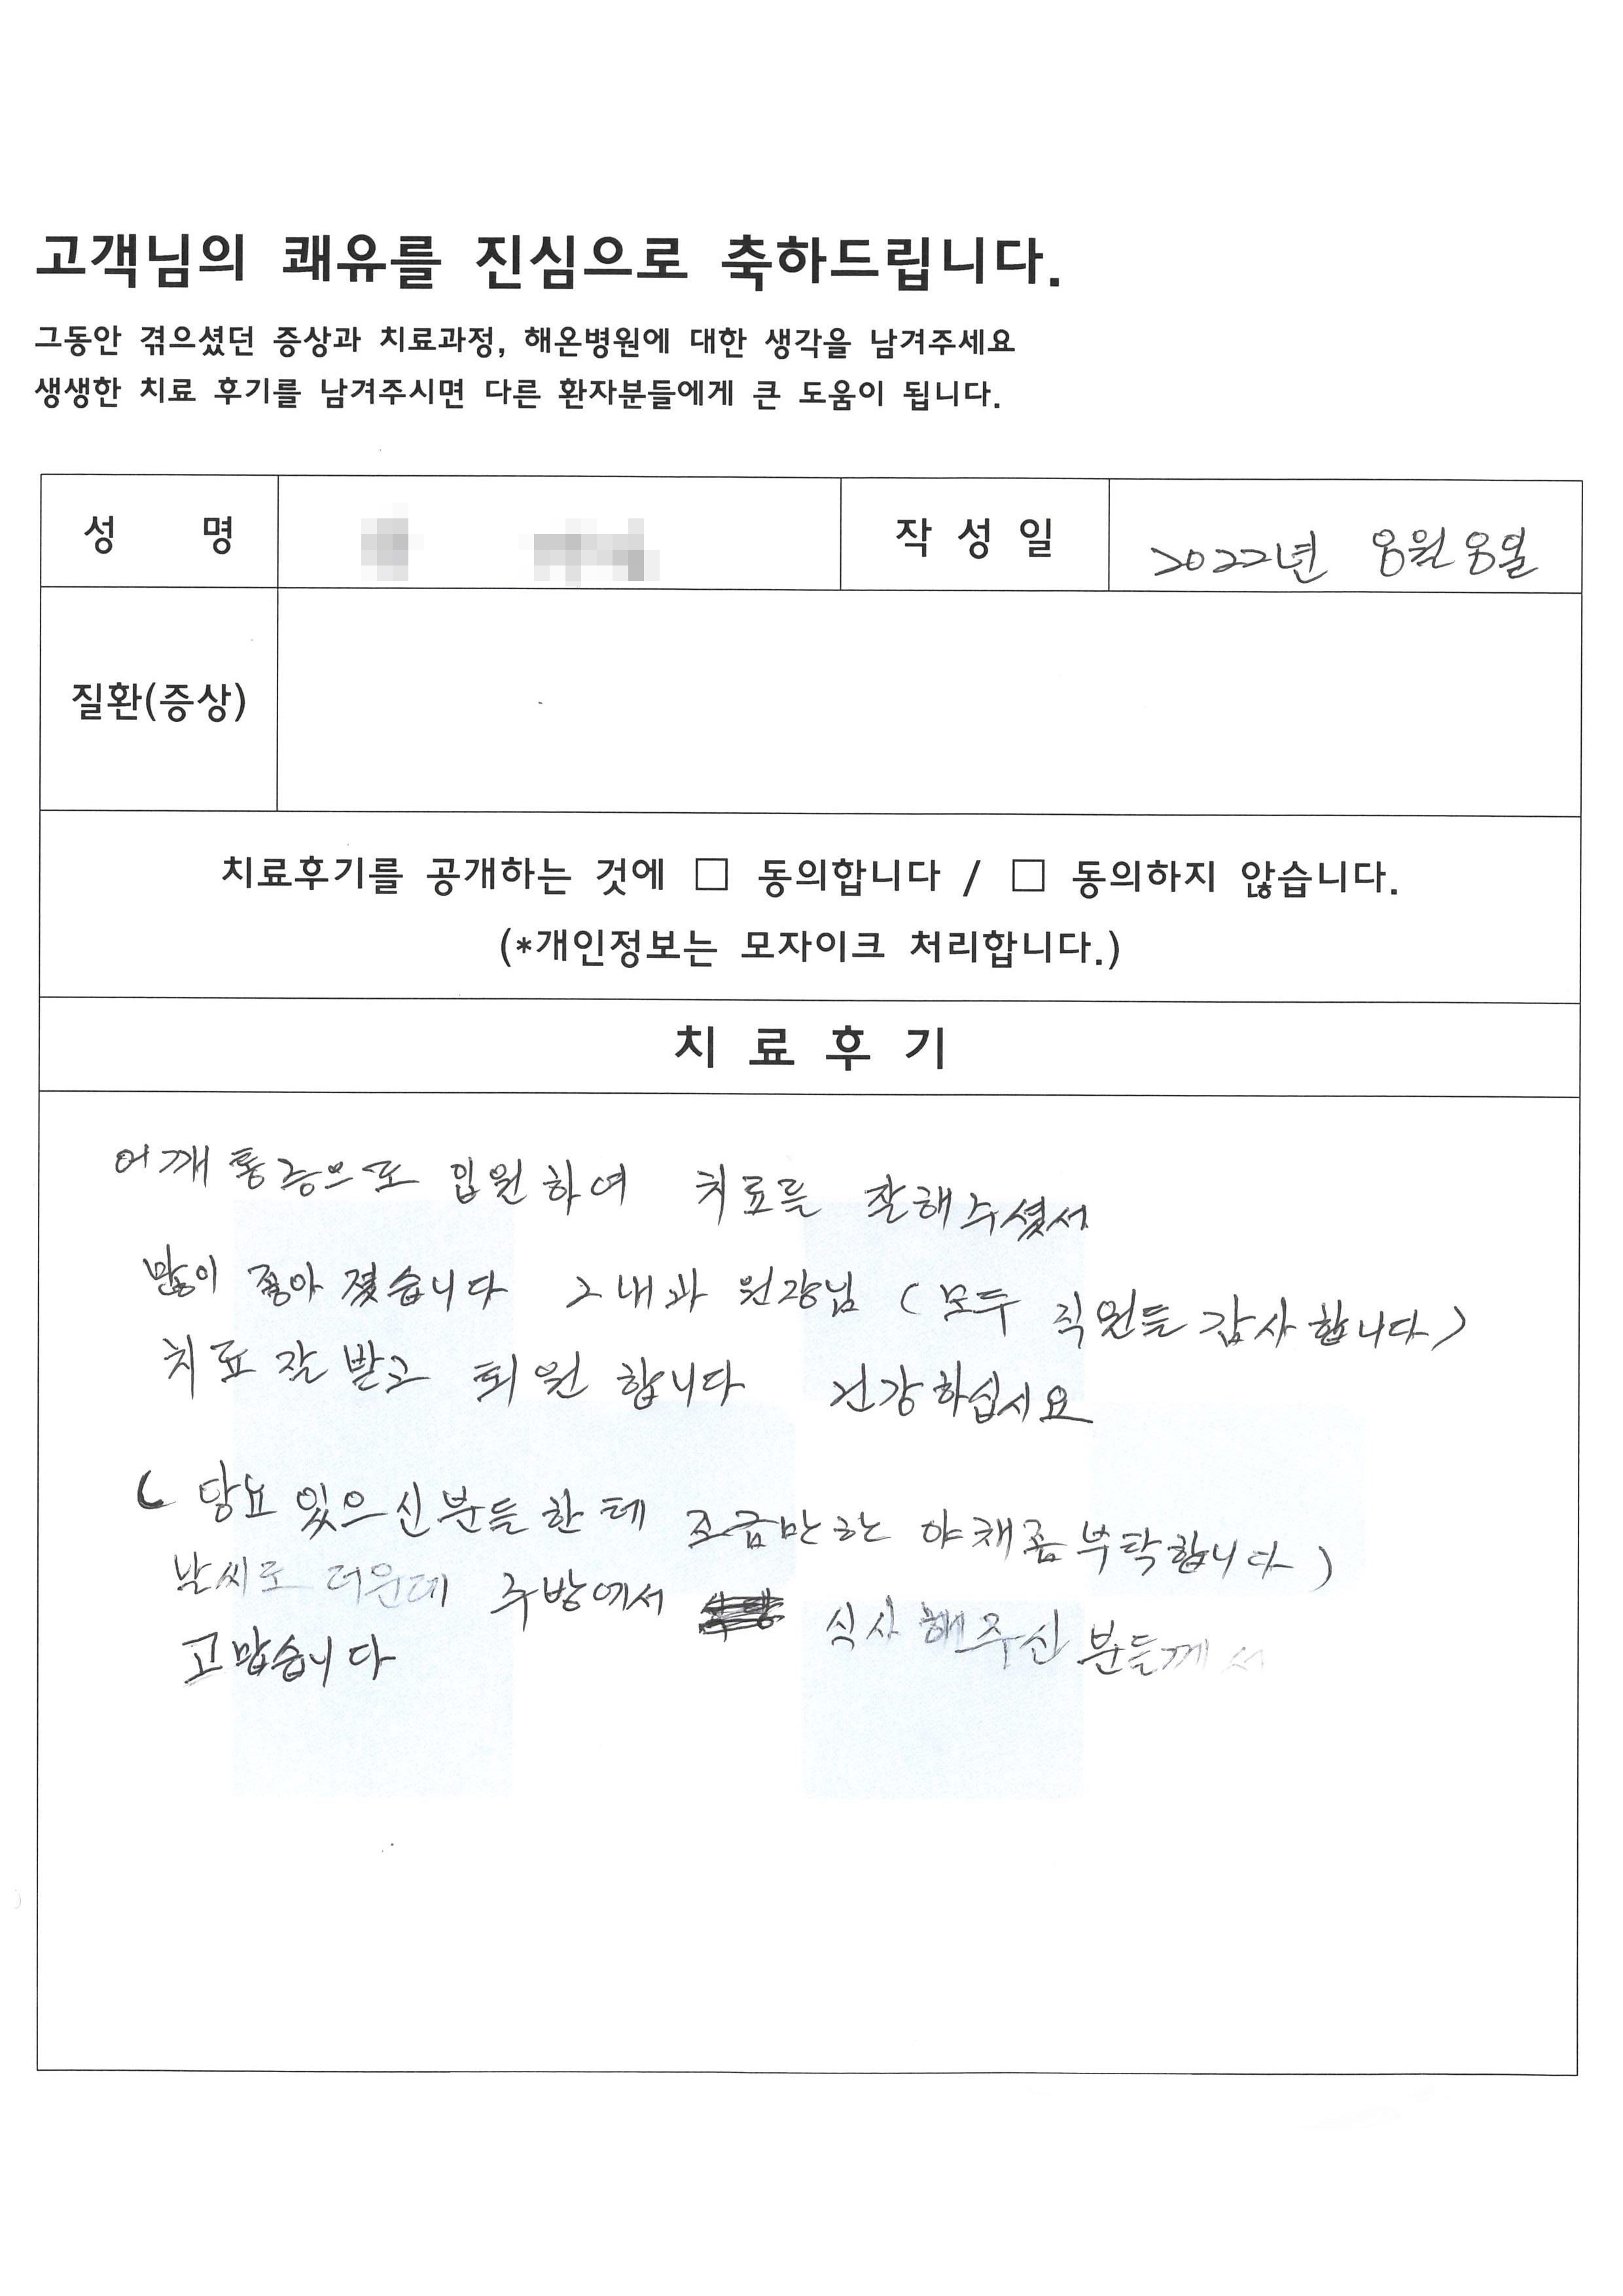 고객님의 쾌유를 진심으로 축하드립니다.
그동안 겪으셨던 증상과 치료과정, 해온병원에 대한 생각을 남겨주세요
생생한 치료 후기를 남겨주시면 다른 환자분들에게 큰 도움이 됩니다.
성 명
작 성 일
2022년 8월 8일
질환(증상)
치료후기를 공개하는 것에 □ 동의합니다 / □ 동의하지 않습니다.
(*개인정보는 모자이크 처리합니다.)
치 료 후 기
어깨 통증으로 입원하여 치료를 잘해주셨서
많이 좋아 졌습니다 2내과 원장님 (모두 직원들 감사합니다)
치료 잘 받고 퇴원 합니다 건강하십시요
( 당뇨 있으신분들 한테 조금만한 야채좀 부탁합니다)
날씨도 더운데 주방에서 식사 해주신 분들께서
고맙습니다